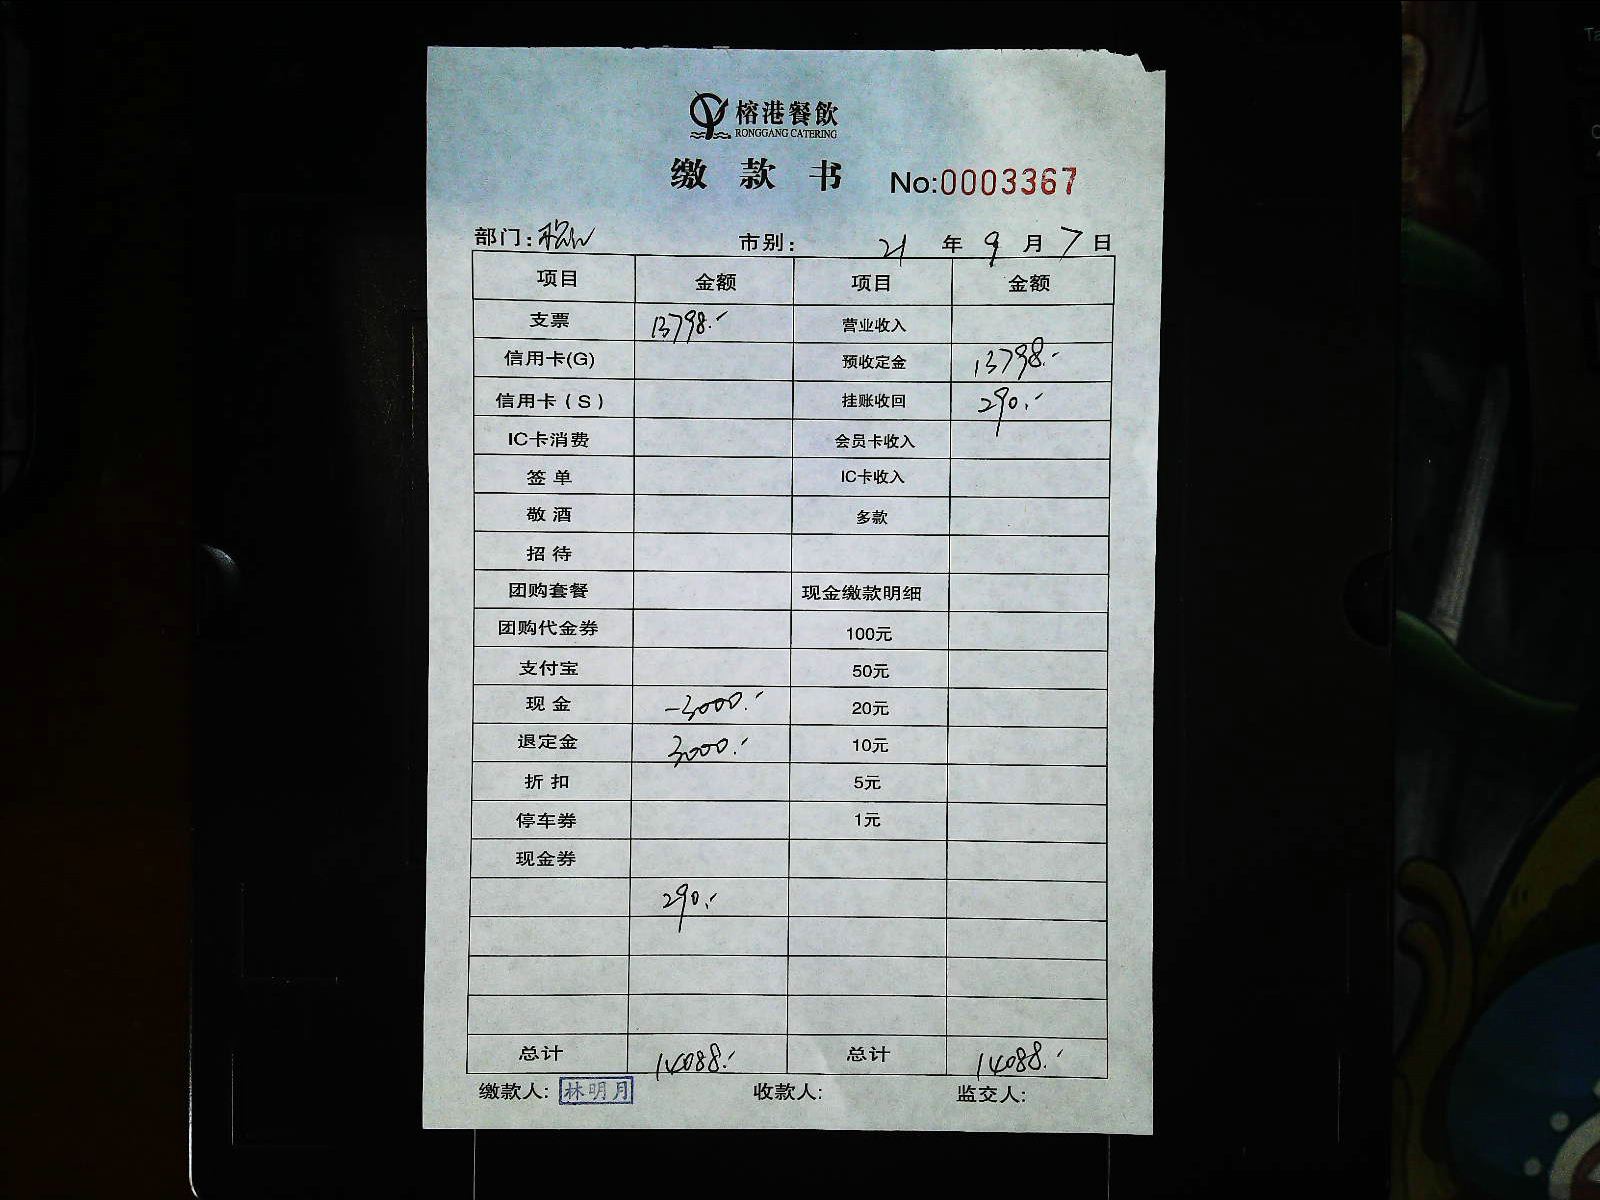 榕港餐飲
RONGGANG CATERING
缴款书 No:0003367
部门: 市别: 21 年 9 月 7 日
项目 金额 项目 金额
支票 13798.- 营业收入
信用卡(G) 预收定金 13798.-
信用卡(S) 挂账收回 290.-
IC卡消费 会员卡收入
签单 IC卡收入
敬酒 多款
招待
团购套餐 现金缴款明细
团购代金券 100元
支付宝 50元
现金 -3000.- 20元
退定金 3000.- 10元
折扣 5元
停车券 1元
现金券
290.-
总计 14088.- 总计 14088.-
缴款人: 林明月 收款人: 监交人: